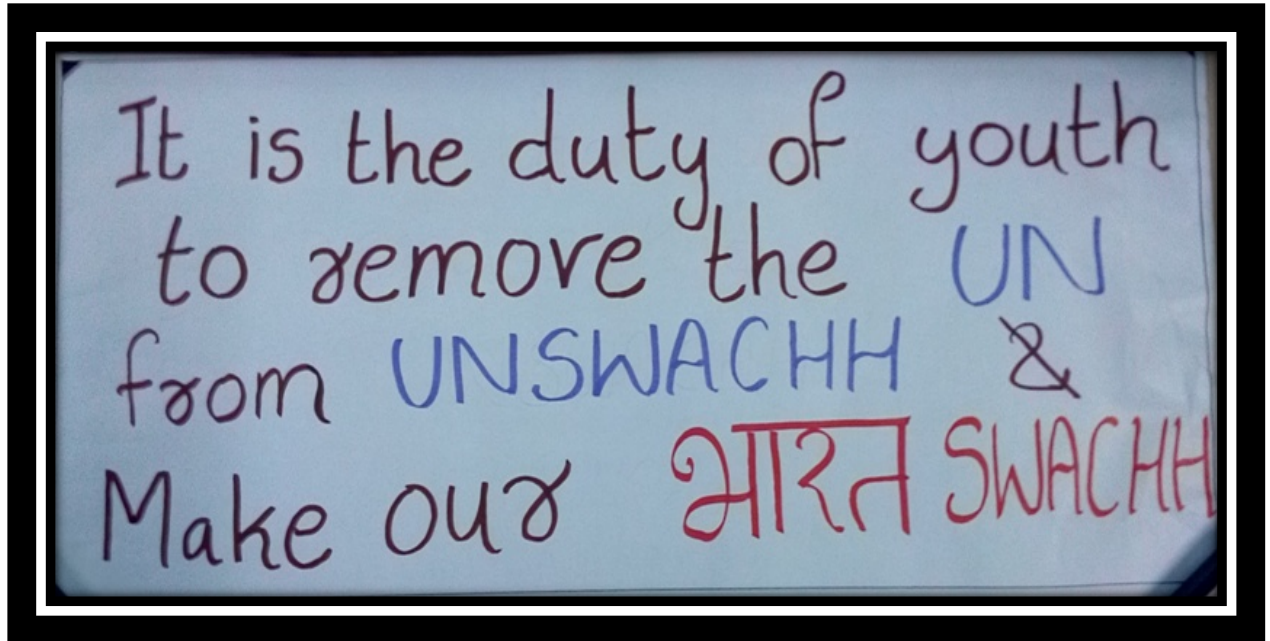 It is the duty of youth
to remove the UN
from UNSWACHH &
Make our भारत SWACHH